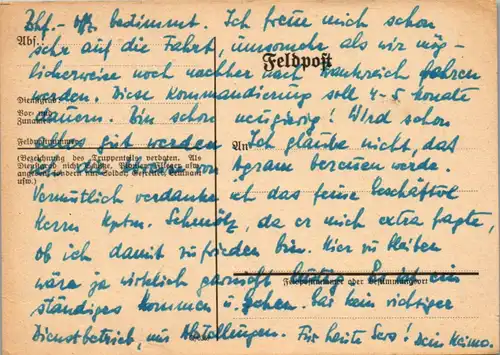 Bhf. - bedimmt. Ich freue mich schon
Abf.:
sehr auf die Fahrt, umsomehr als wir mög-
Feldpost
licherweise noch nachher nach Frankreich fahren
Dienstgrad:
werden. Diese Kommandierung soll 4-5 Monate
Vor- und
Zuname:
dauern. Bin schon neugierig! Wird schon
Feldpostnummer:
alles gut werden. Ich glaube nicht, das
An
(Bezeichnung des Truppenteils verboten. Als
Agram bereuen werde.
Dienstgrad nicht
angeben, sondern nur Soldat, Gefreiter, Leutnant
usw.)
Vermutlich verdanke ich das feine Geschäftl
Herrn Kptn. Schmölz, da er mich extra fragte,
ob ich damit zufrieden bin. Hier zu bleiben
wäre ja wirklich garnicht lustig. Es ist ein
Feldpostnummer oder Bestimmungsort
ständiges Kommen u. gehen. Gar kein richtiger
Dienstbetrieb, nur Abteilungen. Für heute Sers! Dein Heimo.